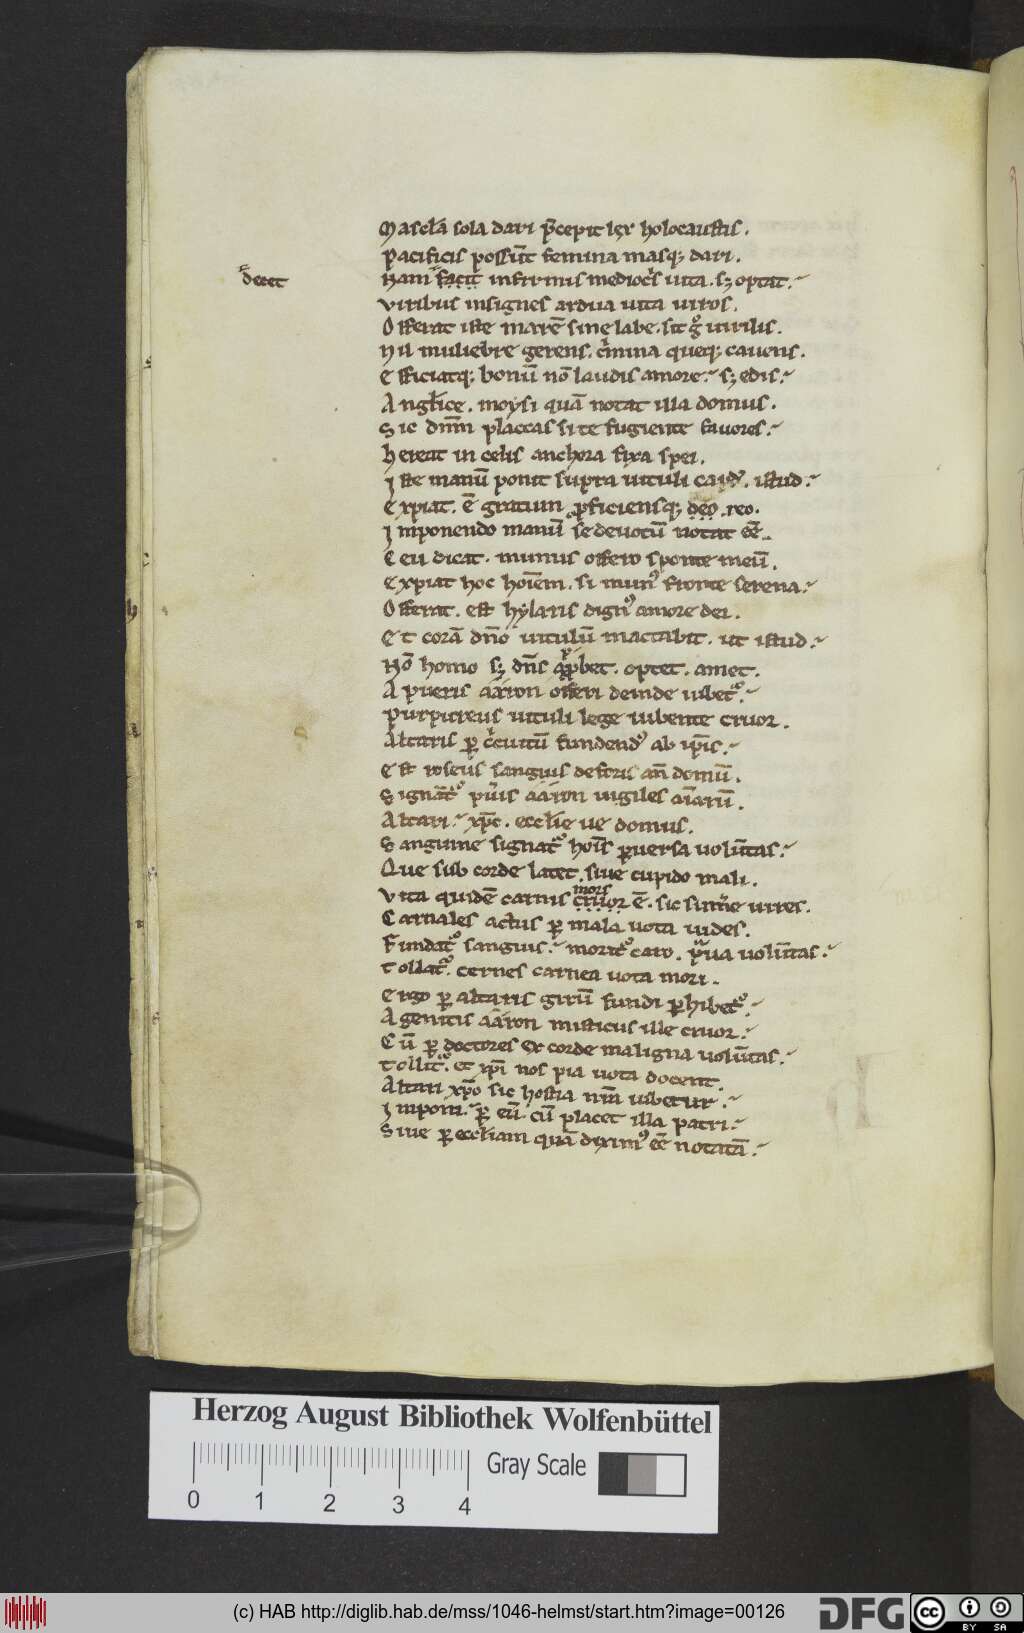 Mascl̄a sola dari p̄cepit lex holocaustis.
Pacificis possūt femina masq; dari.
decet
Nam facit infirmis mediocͥs uita. sꝫ optat.
Viribus insignes ardua uita uiros.
Offerat iste marē sine labe. sit gͦ uirilis.
Nil muliebre gerens. cͥmina queq; cauens.
Efficiatq; bonū nō laudis amore. sꝫ edis.
Angl̄ice. moysi quā notat illa domus.
Sic dn̄m placeas si te fugiente fauores.
Hereat in celis anchora fixa spei.
Iste manū ponit supra uituli capud. istud
Expiat. ē gratum ꝓficiensq; deo. reo.
Imponendo manū se deuotū notat eē.
Ceu dicat. munus offero sponte meū.
Expiat hoc hoīem. si mun᷒ fronte serena.
Offerat. est hylaris dign᷒ amore dei.
Et corā dn̄o uitulū mactabit. ut istud
Nō homo sꝫ dn̄s ꝓbet. optet. amet.
A pueris aaron offeri deinde iubet᷒.
Purpureus uituli lege iubente cruor.
Altaris ꝑ cͥcuitū fundend᷒ ab ip̄is.
Est roseus sanguis de foris an̄ domū.
Signāt᷒ pu̅is aaron uigiles aīarū.
Altari. xp̄c. eccl̄ie ue domus.
Sanguine signat᷒ hoīs ꝑuersa uolūtas.
Que sub corde latet. siue cupido mali.
mors
Vita quidē carnis cruor ē. sic sum̄e uires.
Carnales actus ꝑ mala uota uides.
Fundat᷒ sanguis. morit᷒ caro. pͣua uolūtas.
Tollat᷒. cernes carnea uota mori.
Ergo ꝑ altaris girū fundi ꝑhibet᷒.
A genitis aaron misticus ille cruor.
Cū ꝑ doctores ex corde maligna uolūtas.
Tollit᷒. et xp̄i nos pia uota docent.
Altari xp̄o sic hostia nr̄m iubetur.
Imponi. ꝑ eū. cū placet illa patri.
Siue ꝑ eccl̄iam quā dixim᷒ eē notatā.
Herzog August Bibliothek Wolfenbüttel
0 1 2 3 4
Gray Scale
(c) HAB http://diglib.hab.de/mss/1046-helmst/start.htm?image=00126
DFG
cc BY SA